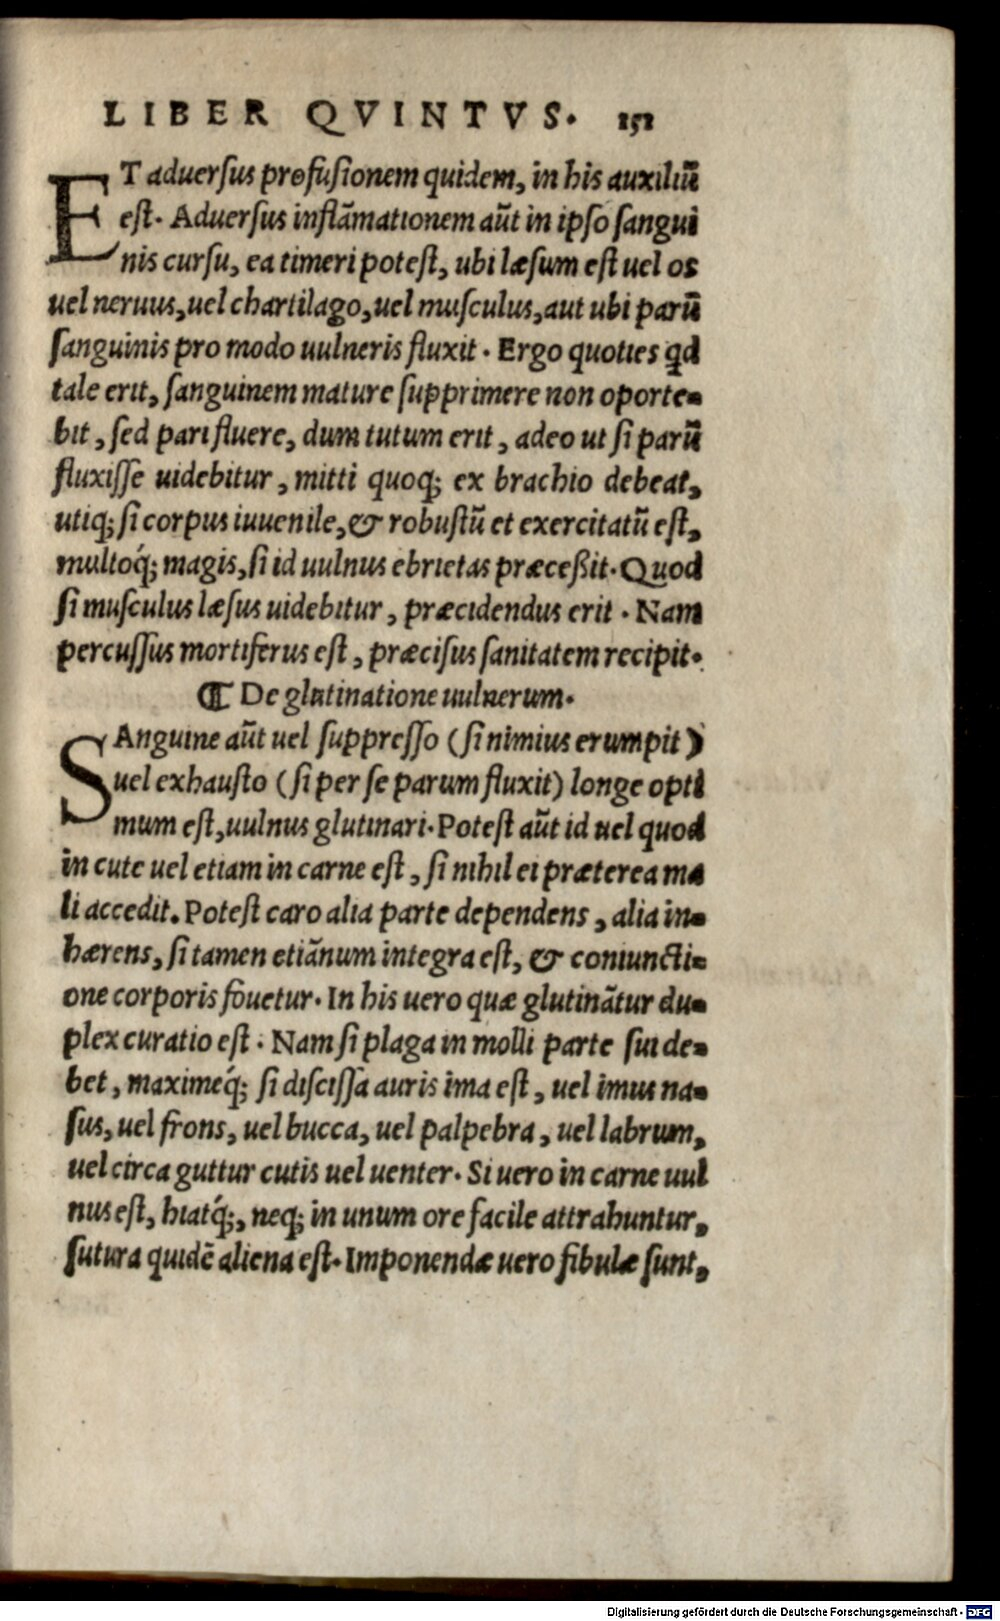 LIBER QVINTVS. 151
ET aduersus profusionem quidem, in his auxiliū
est. Aduersus inflāmationem aūt in ipso sangui
nis cursu, ea timeri potest, ubi læsum est uel os
uel neruus, uel chartilago, uel musculus, aut ubi parū
sanguinis pro modo uulneris fluxit. Ergo quoties qd
tale erit, sanguinem mature supprimere non oporte-
bit, sed pati fluere, dum tutum erit, adeo ut si parū
fluxisse uidebitur, mitti quoq; ex brachio debeat,
utiq; si corpus iuuenile, & robustū et exercitatū est,
multoq́; magis, si id uulnus ebrietas præceßit. Quod
si musculus læsus uidebitur, præcidendus erit. Nam
percussus mortiferus est, præcisus sanitatem recipit.
¶ De glutinatione uulnerum.
SAnguine aūt uel suppresso (si nimius erumpit)
uel exhausto (si per se parum fluxit) longe opti
mum est, uulnus glutinari. Potest aūt id uel quod
in cute uel etiam in carne est, si nihil ei præterea ma
li accedit. Potest caro alia parte dependens, alia in-
hærens, si tamen etiānum integra est, & coniuncti-
one corporis fouetur. In his uero quæ glutinātur du-
plex curatio est. Nam si plaga in molli parte sui de-
bet, maximeq́; si discissa auris ima est, uel imus na-
sus, uel frons, uel bucca, uel palpebra, uel labrum,
uel circa guttur cutis uel uenter. Si uero in carne uul
nus est, hiatq́;, neq; in unum ore facile attrahuntur,
sutura quidē aliena est. Imponendæ uero fibulæ sunt,
Digitalisierung gefördert durch die Deutsche Forschungsgemeinschaft - DFG